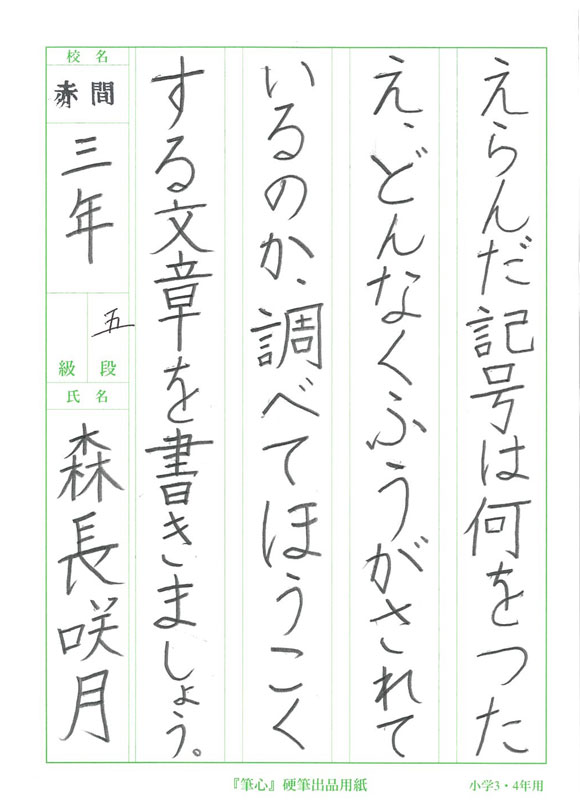 えらんだ記号は何をつた
え、どんなくふうがされて
いるのか、調べてほうこく
する文章を書きましょう。
校名
赤間
三年
五
級 段
氏名
森長咲月
『筆心』硬筆出品用紙
小学3・4年用